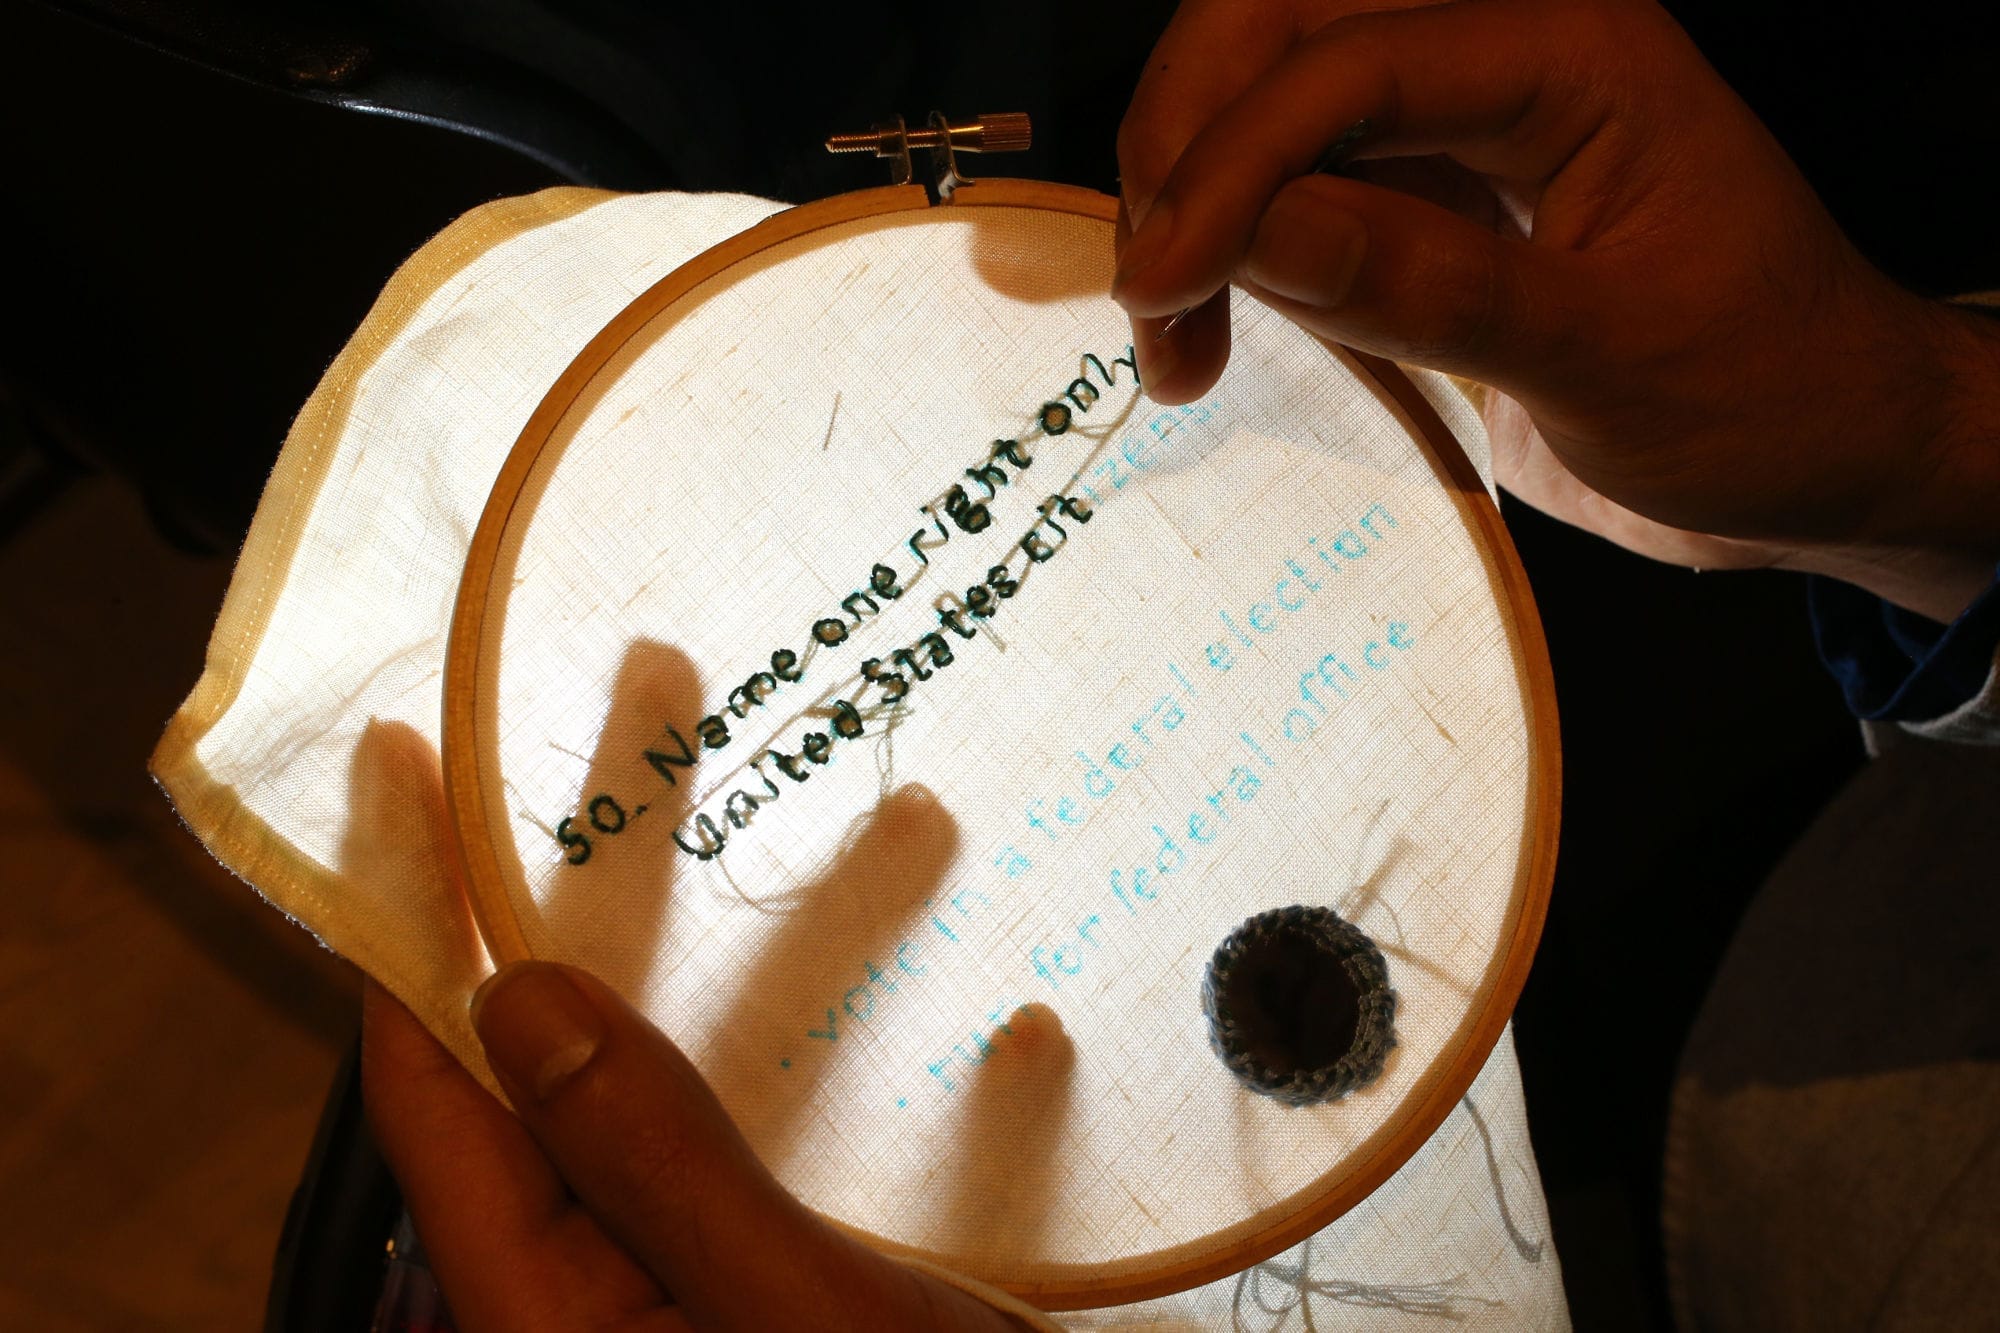 50. Name one right only
United States citizens
• vote in a federal election
• run for federal office